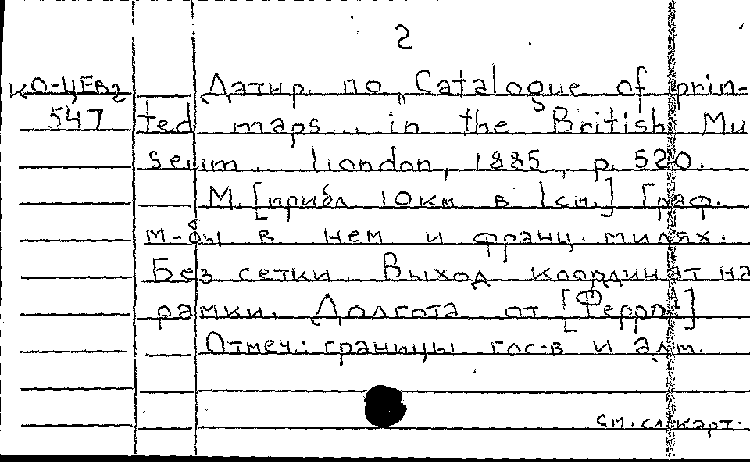 2
КО-ЦЕвг Датир. по „Catalogue of prin-
547 ted maps... in the British Mu
seum. London, 1885, p. 520.
М. [прибл 10км в 1см.] Граф.
м-бы в нем и франц. милях.
Без сетки Выход координат на
рамки. Долгота от [Ферро]
Отмеч.: границы гос-в и адм.
см. сл. карт.